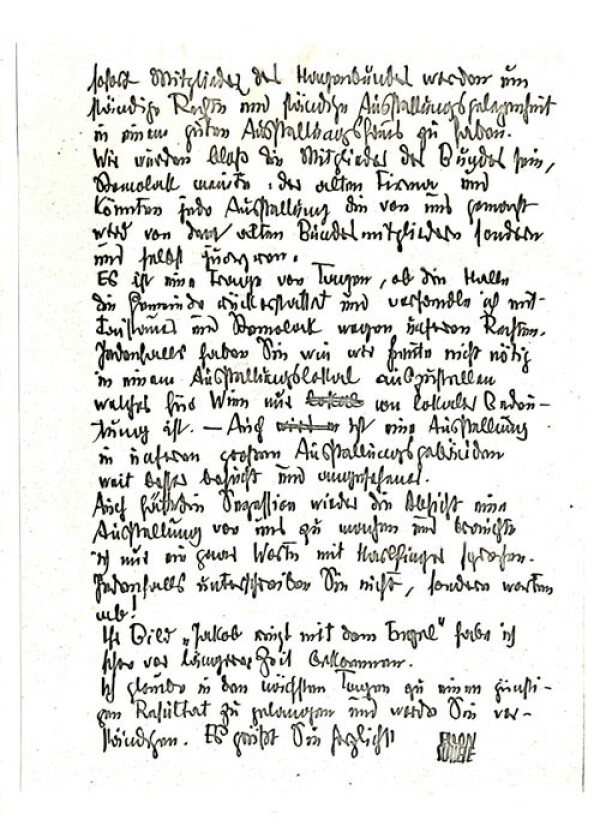 sofort Mitglieder des Hagenbundes werden um
ständige Rechte und ständige Ausstellungsgelegenheit
in einem guten Ausstellungshaus zu haben.
Wir würden bloß die Mitglieder des Bundes sein,
Remolak meinte: der alten Firma und
könnten jede Ausstellung die von uns gemacht
wird von den alten Bundesmitgliedern sondern
und selbst
Es ist eine Frage von Tagen, ob die Halle
die Gemeinde rückerstattet und verhandle ich mit
und Remolak wegen unseren Rechten.
Jedenfalls haben Sie wie wir heute nicht nötig
in einem Ausstellungslokal auszustellen
welches für Wien nur lokal von lokaler Bedeu-
tung ist. – Auch ist eine Ausstellung
in unseren großen Ausstellungsgebäuden
weit besser besucht und angesehener.
Auch hätte die Sezession wieder die Absicht eine
Ausstellung von uns zu machen und brauchte
ich nur ein paar Worte mit Harlfinger sprechen.
Jedenfalls unterschreiben Sie nicht, sondern warten
ab!
Ihr Bild „Jakob ringt mit dem Engel" habe ich
schon vor längerer Zeit bekommen.
Ich glaube in den nächsten Tagen zu einem günsti-
gen Resultat zu gelangen und werde Sie ver-
ständigen. Es grüßt Sie herzlichst
EGON
SCHIELE